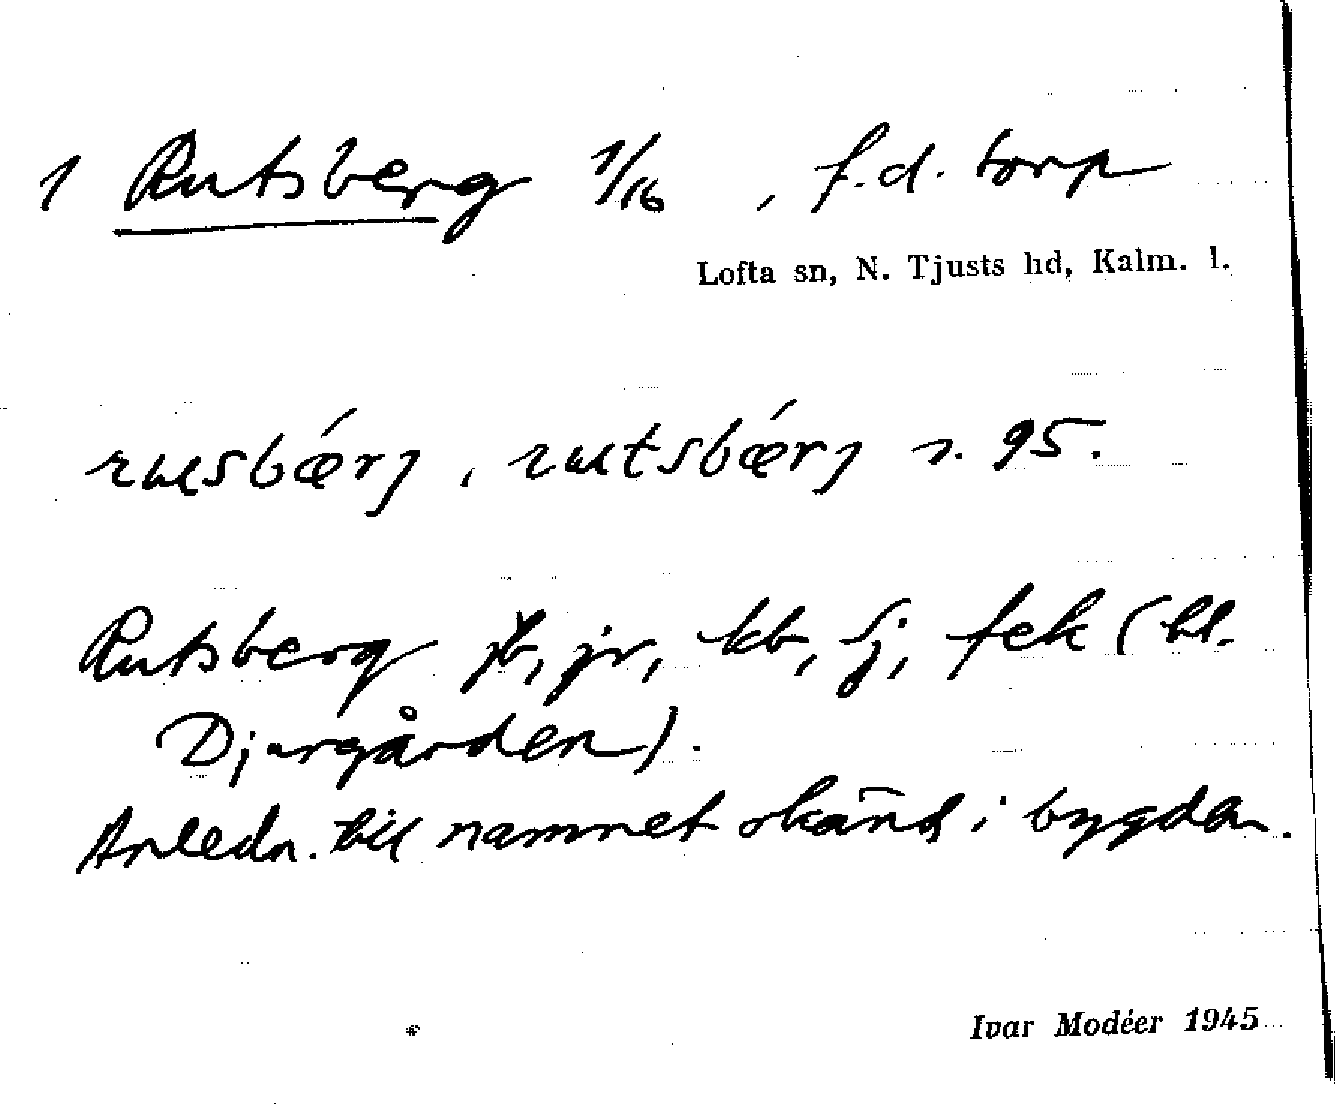 1 Rutsberg 1/16, f.d. torp
Lofta sn, N. Tjusts hd, Kalm. l.
rusbǽrj, rutsbǽrj s. 95.
Rutsberg jb, jr, kb, sj, fek (bl.
Djurgården).
Anledn. till namnet okänd i bygden.
Ivar Modéer 1945